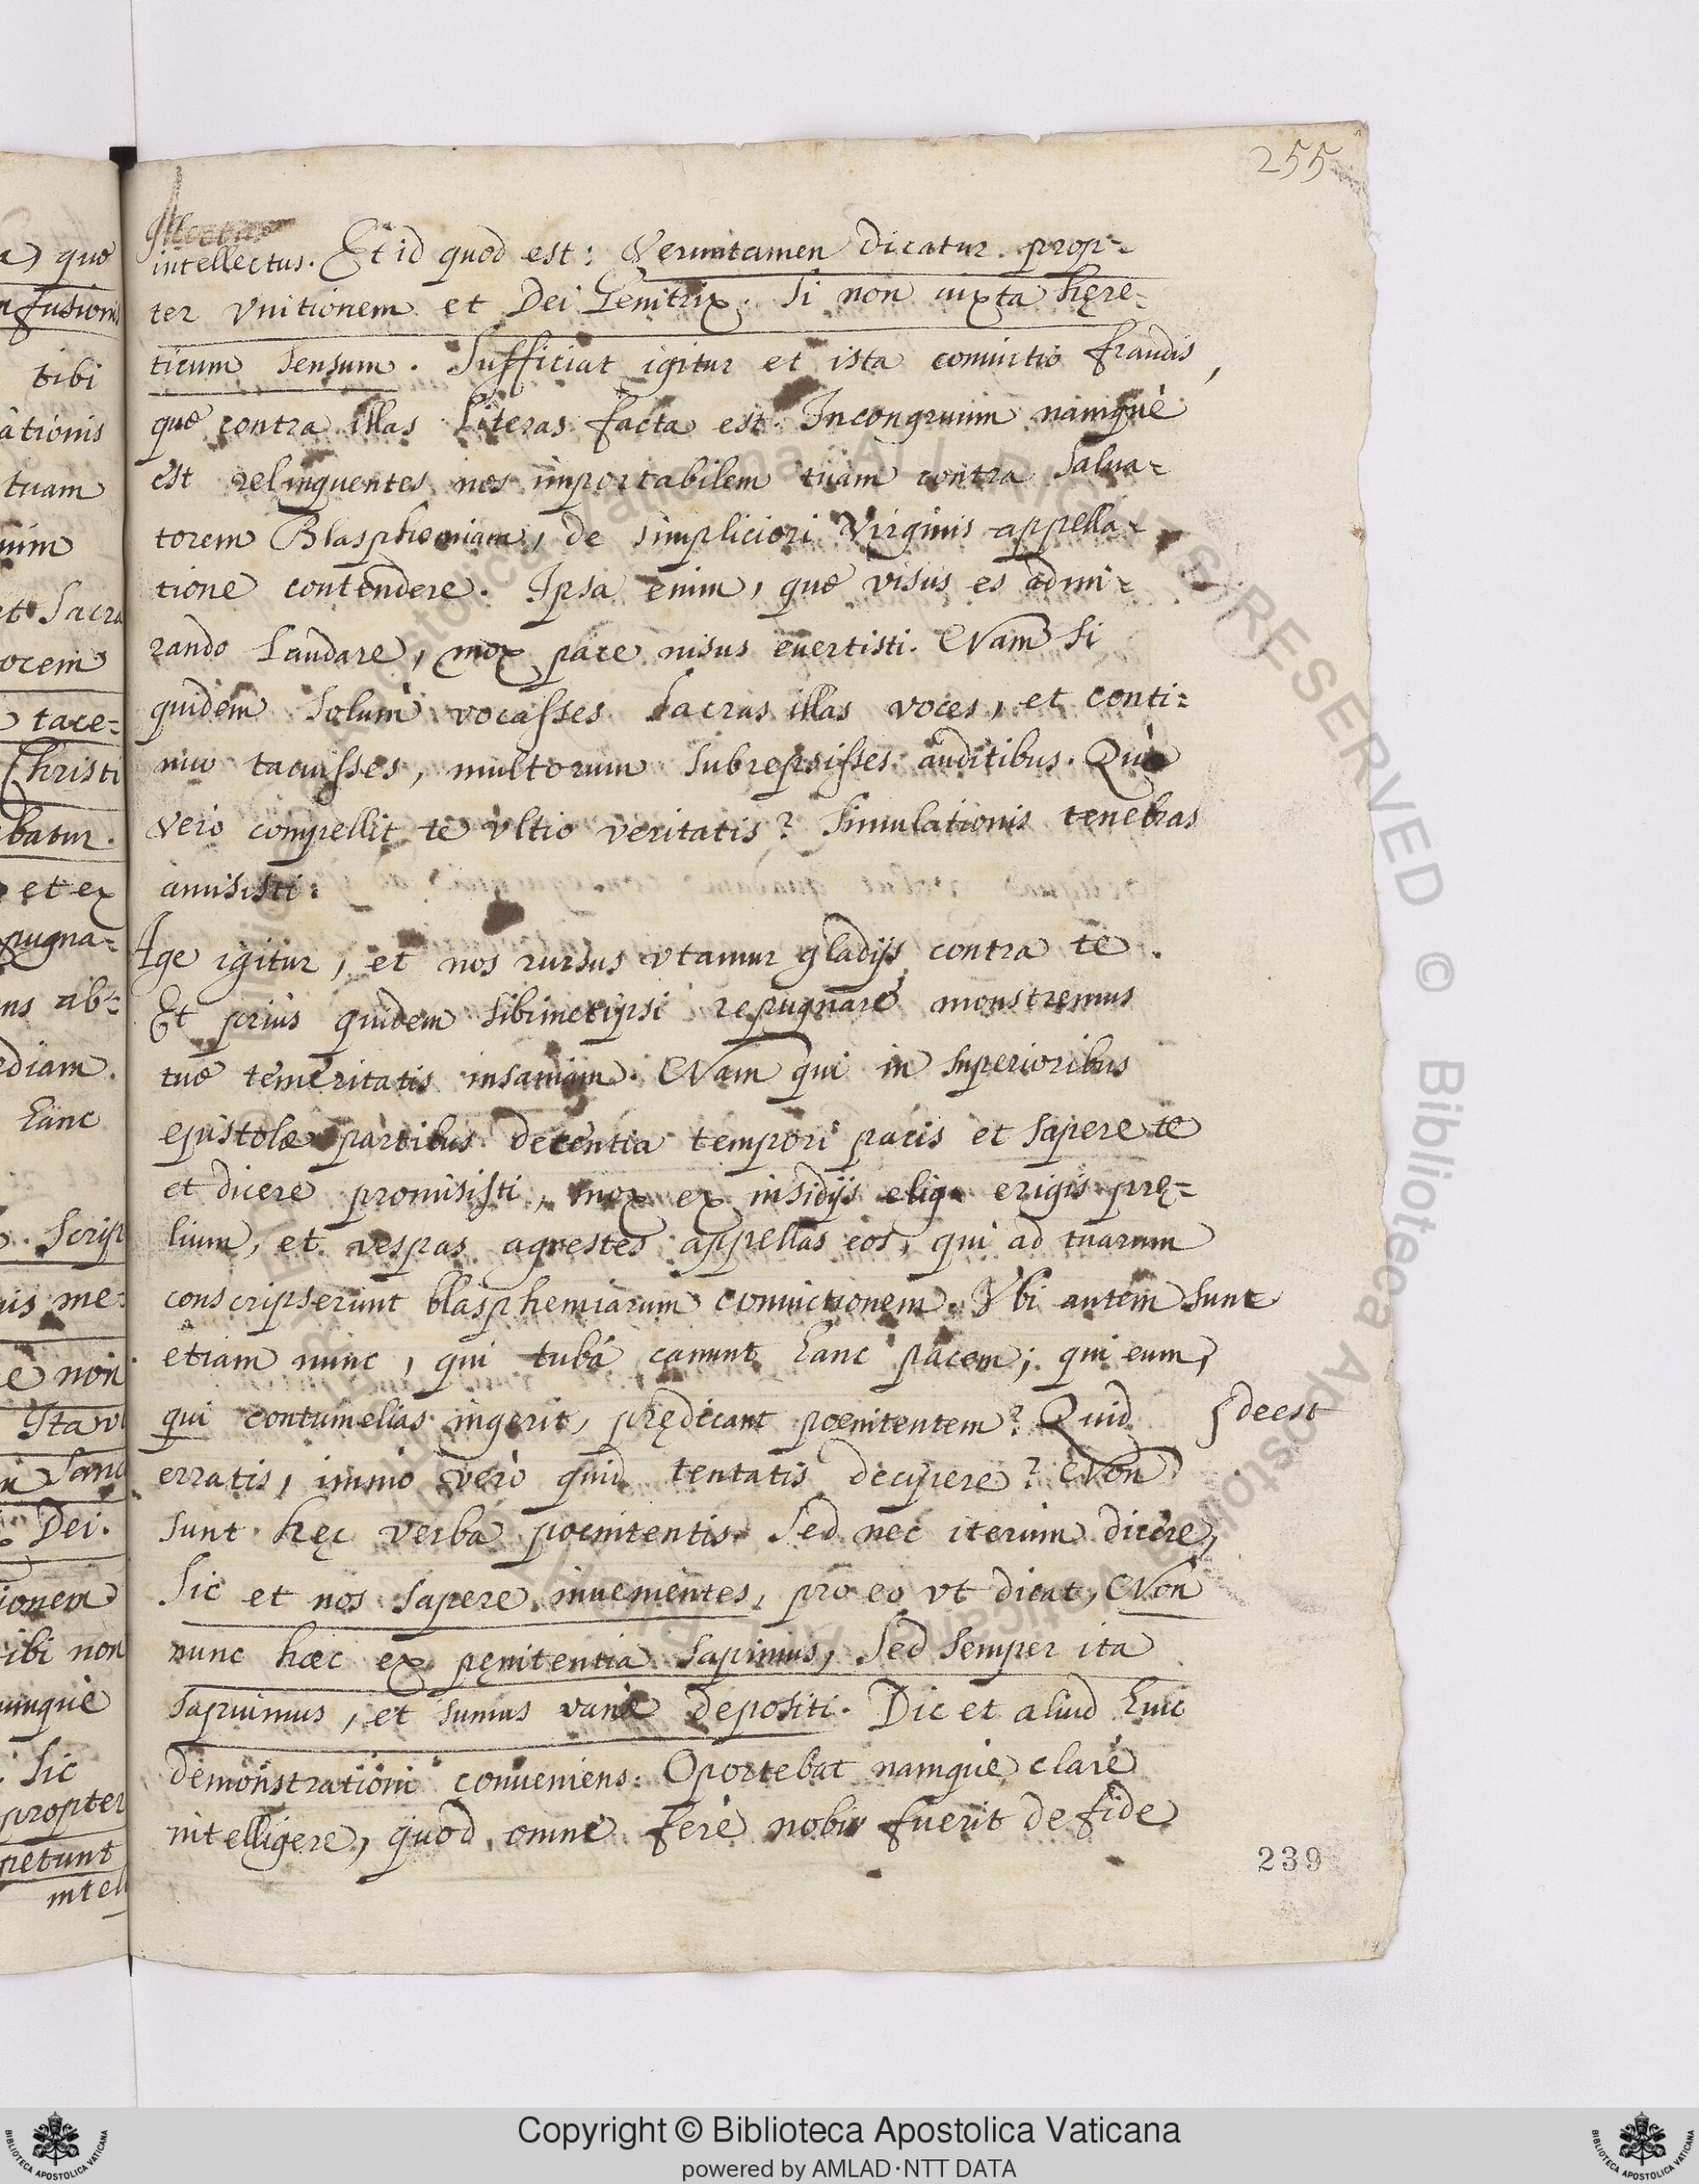 255
intellectus. Et id quod est: Veruntamen dicatur prop=
ter vnitionem et Dei Genitrix. Si non iuxta hęre=
ticum sensum. Sufficiat igitur et ista conuictio fraudis,
quæ contra illas literas facta est. Incongruum namquè
est relinquentes nos importabilem tuam contra Salua=
torem Blasphemiam, de simpliciori Virginis appella=
tione contendere. Ipsa enim, quæ visus es admi=
rando laudare, mox pace nisus euertisti. Nam si
quidem solum vocasses sacras illas voces, et conti=
nuo tacuisses, multorum subrepsisses auditibus. Quò
vero compellit te vltio veritatis? Simulationis tenebras
amisisti:
Age igitur, et nos rursus vtamur gladijs contra te.
Et prius quidem sibimetipsi repugnare monstremus
tuæ temeritatis insaniam. Nam qui in superioribus
epistolæ partibus decentia tempori pacis et sapere te
et dicere promisisti, mox ex insidijs erigis prę=
lium, et vespas agrestes appellas eos, qui ad tuarum
conscripserunt blasphemiarum conuictionem. Vbi autem sunt
etiam nunc, qui tubá canunt hanc pacem; qui eum,
qui contumelias ingerit, prędicant poenitentem? Quid
deest
erratis, immo verò quid tentatis decipere? Non
sunt hęc verba poenitentis. Sed nec iterum dicere,
Sic et nos sapere inuenientes, pro eo vt dicat, Non
nunc hæc ex pęnitentia sapimus, sed semper ita
sapuimus, et sumus vanè depositi. Dic et aliud huic
demonstrationi conueniens. Oportebat namque clarè
intelligere, quod omne ferè nobis fuerit de fide
239
a, quæ
tibi
ationis
tuam
et Sacra
ocem
tace=
Christi
batur.
et ex
pugna=
ns ab=
ediam.
hanc
Scrip
is me
e non
Ita vt
n Sanc
Dei.
ionem
ibi non
umquè
Sic
propter
petunt
intell
Copyright © Biblioteca Apostolica Vaticana
powered by AMLAD·NTT DATA
BIBLIOTECA APOSTOLICA VATICANA
BIBLIOTECA APOSTOLICA VATICANA